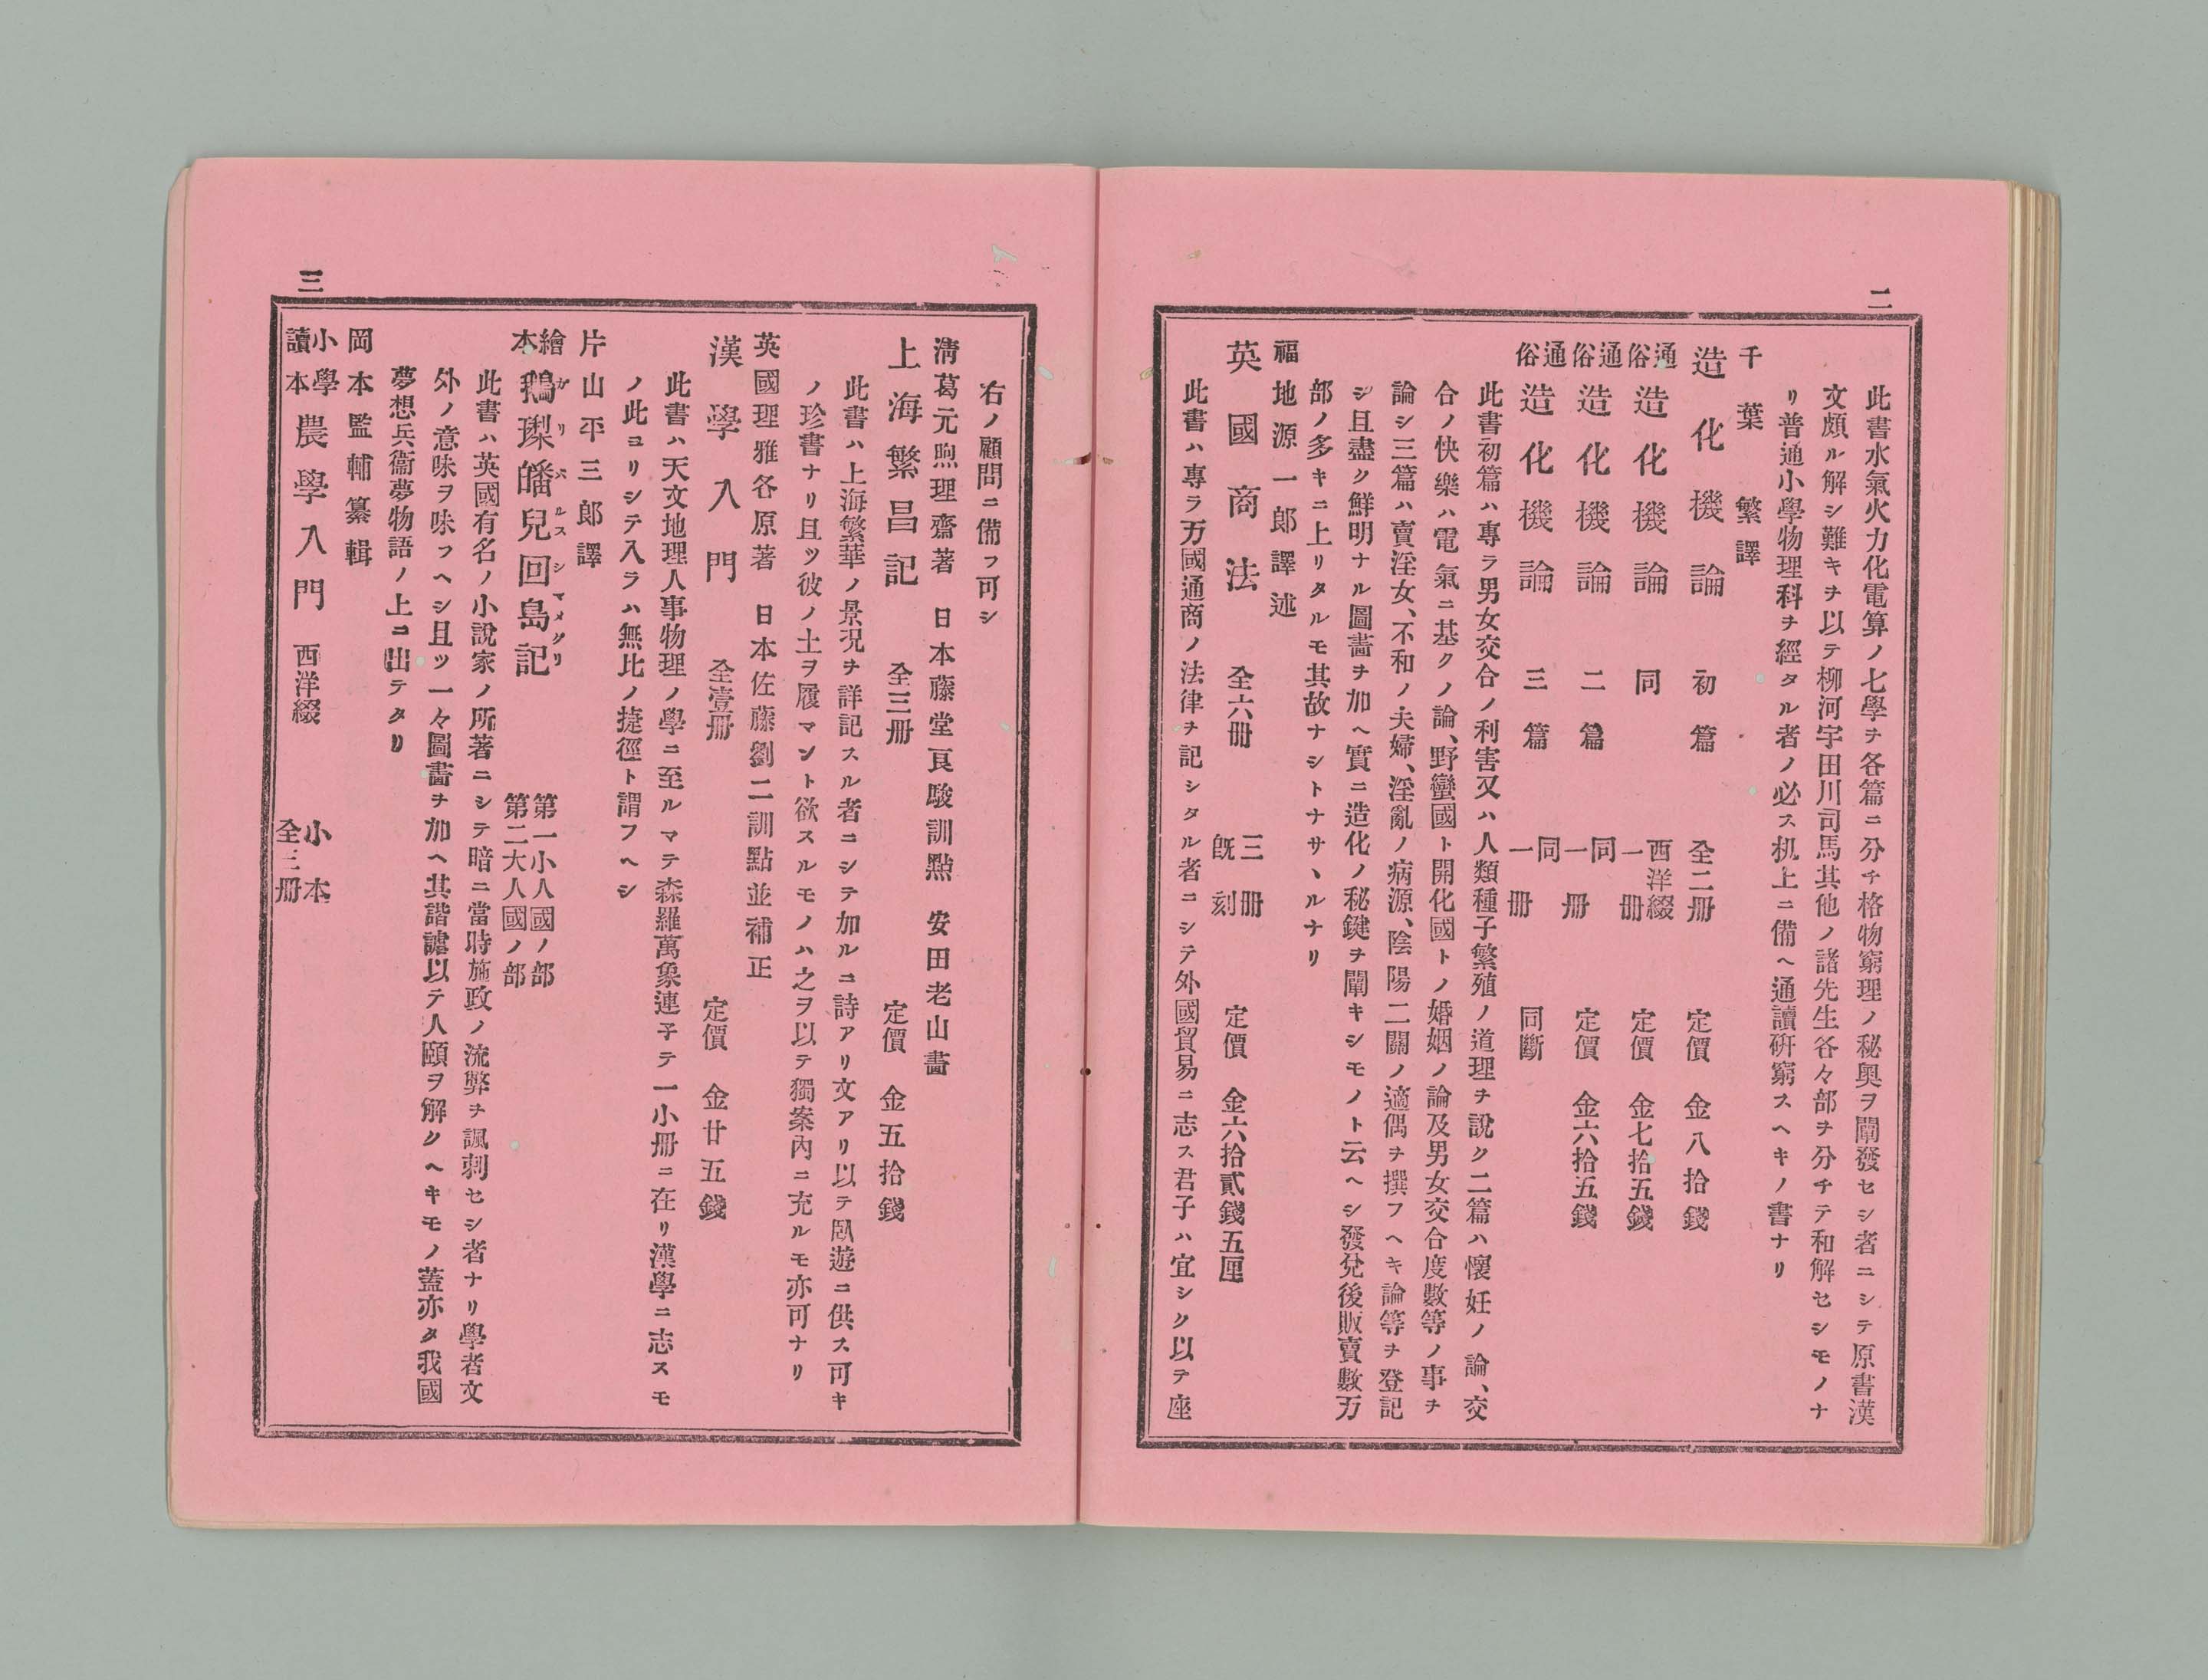 二
此書水氣火力化電算ノ七學ヲ各篇ニ分チ格物窮理ノ秘奥ヲ闡發セシ者ニシテ原書漢
文頗ル解シ難キヲ以テ柳河宇田川司馬其他ノ諸先生各々部ヲ分チテ和解セシモノナ
リ普通小學物理科ヲ經タル者ノ必ス机上ニ備ヘ通讀研窮スヘキノ書ナリ
千葉繁譯
造化機論 初篇 全二冊 定價 金八拾錢
通俗 造化機論 同 西洋綴一冊 定價 金七拾五錢
通俗 造化機論 二篇 同一冊 定價 金六拾五錢
通俗 造化機論 三篇 同一冊 同斷
此書初篇ハ專ラ男女交合ノ利害又ハ人類種子繁殖ノ道理ヲ說ク二篇ハ懷妊ノ論、交
合ノ快樂ハ電氣ニ基クノ論、野蠻國ト開化國トノ婚姻ノ論及男女交合度數等ノ事ヲ
論シ三篇ハ賣淫女、不和ノ夫婦、淫亂ノ病源、陰陽二關ノ適偶ヲ撰フヘキ論等ヲ登記
シ且盡ク鮮明ナル圖畵ヲ加ヘ實ニ造化ノ秘鍵ヲ闡キシモノト云ヘシ發兌後販賣數万
部ノ多キニ上リタルモ其故ナシトナサヽルナリ
福地源一郎譯述
英國商法 全六冊 三冊既刻 定價 金六拾貳錢五厘
此書ハ專ラ万國通商ノ法律ヲ記シタル者ニシテ外國貿易ニ志ス君子ハ宜シク以テ座
三
右ノ顧問ニ備フ可シ
淸葛元煦理齋著 日本藤堂良駿訓點 安田老山畵
上海繁昌記 全三冊 定價 金五拾錢
此書ハ上海繁華ノ景況ヲ詳記スル者ニシテ加ルニ詩アリ文アリ以テ臥遊ニ供ス可キ
ノ珍書ナリ且ツ彼ノ土ヲ履マント欲スルモノハ之ヲ以テ獨案內ニ充ルモ亦可ナリ
英國理雅各原著 日本佐藤劉二訓點並補正
漢學入門 全壹冊 定價 金廿五錢
此書ハ天文地理人事物理ノ學ニ至ルマテ森羅萬象連子テ一小冊ニ在リ漢學ニ志スモ
ノ此ヨリシテ入ラハ無比ノ捷徑ト謂フヘシ
片山平三郎譯
繪本 鵝瓈皤兒回島記 ガリバルスシマメグリ 第一小人國ノ部 第二大人國ノ部
此書ハ英國有名ノ小說家ノ所著ニシテ暗ニ當時施政ノ流弊ヲ諷刺セシ者ナリ學者文
外ノ意味ヲ味フヘシ且ツ一々圖畵ヲ加ヘ其諧謔以テ人頤ヲ解クヘキモノ蓋亦タ我國
夢想兵衞夢物語ノ上ニ出テタリ
岡本監輔纂輯
小學讀本 農學入門 西洋綴 小本全三冊